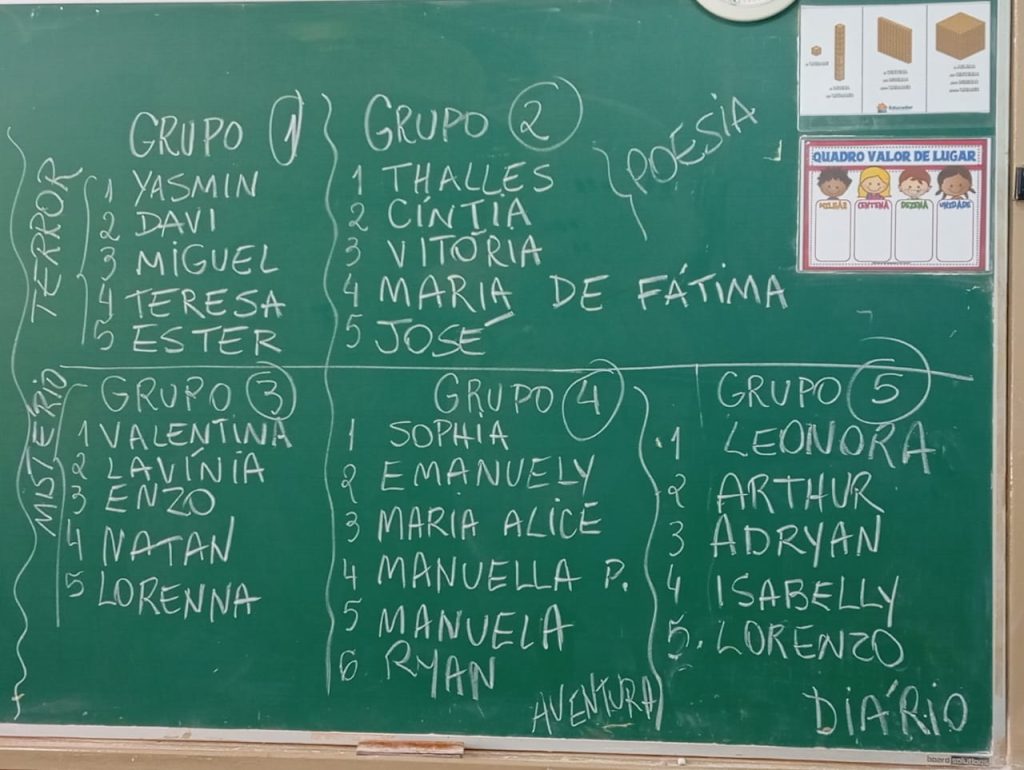 TERROR
GRUPO 1
1 YASMIN
2 DAVI
3 MIGUEL
4 TERESA
5 ESTER
GRUPO 2
POESIA
1 THALLES
2 CÍNTIA
3 VITÓRIA
4 MARIA DE FÁTIMA
5 JOSÉ
MISTÉRIO
GRUPO 3
1 VALENTINA
2 LAVÍNIA
3 ENZO
4 NATAN
5 LORENNA
GRUPO 4
1 SOPHIA
2 EMANUELY
3 MARIA ALICE
4 MANUELLA P.
5 MANUELA
6 RYAN
AVENTURA
GRUPO 5
1 LEONORA
2 ARTHUR
3 ADRYAN
4 ISABELLY
5. LORENZO
DIÁRIO
QUADRO VALOR DE LUGAR
MILHAR CENTENA DEZENA UNIDADE
board solutions